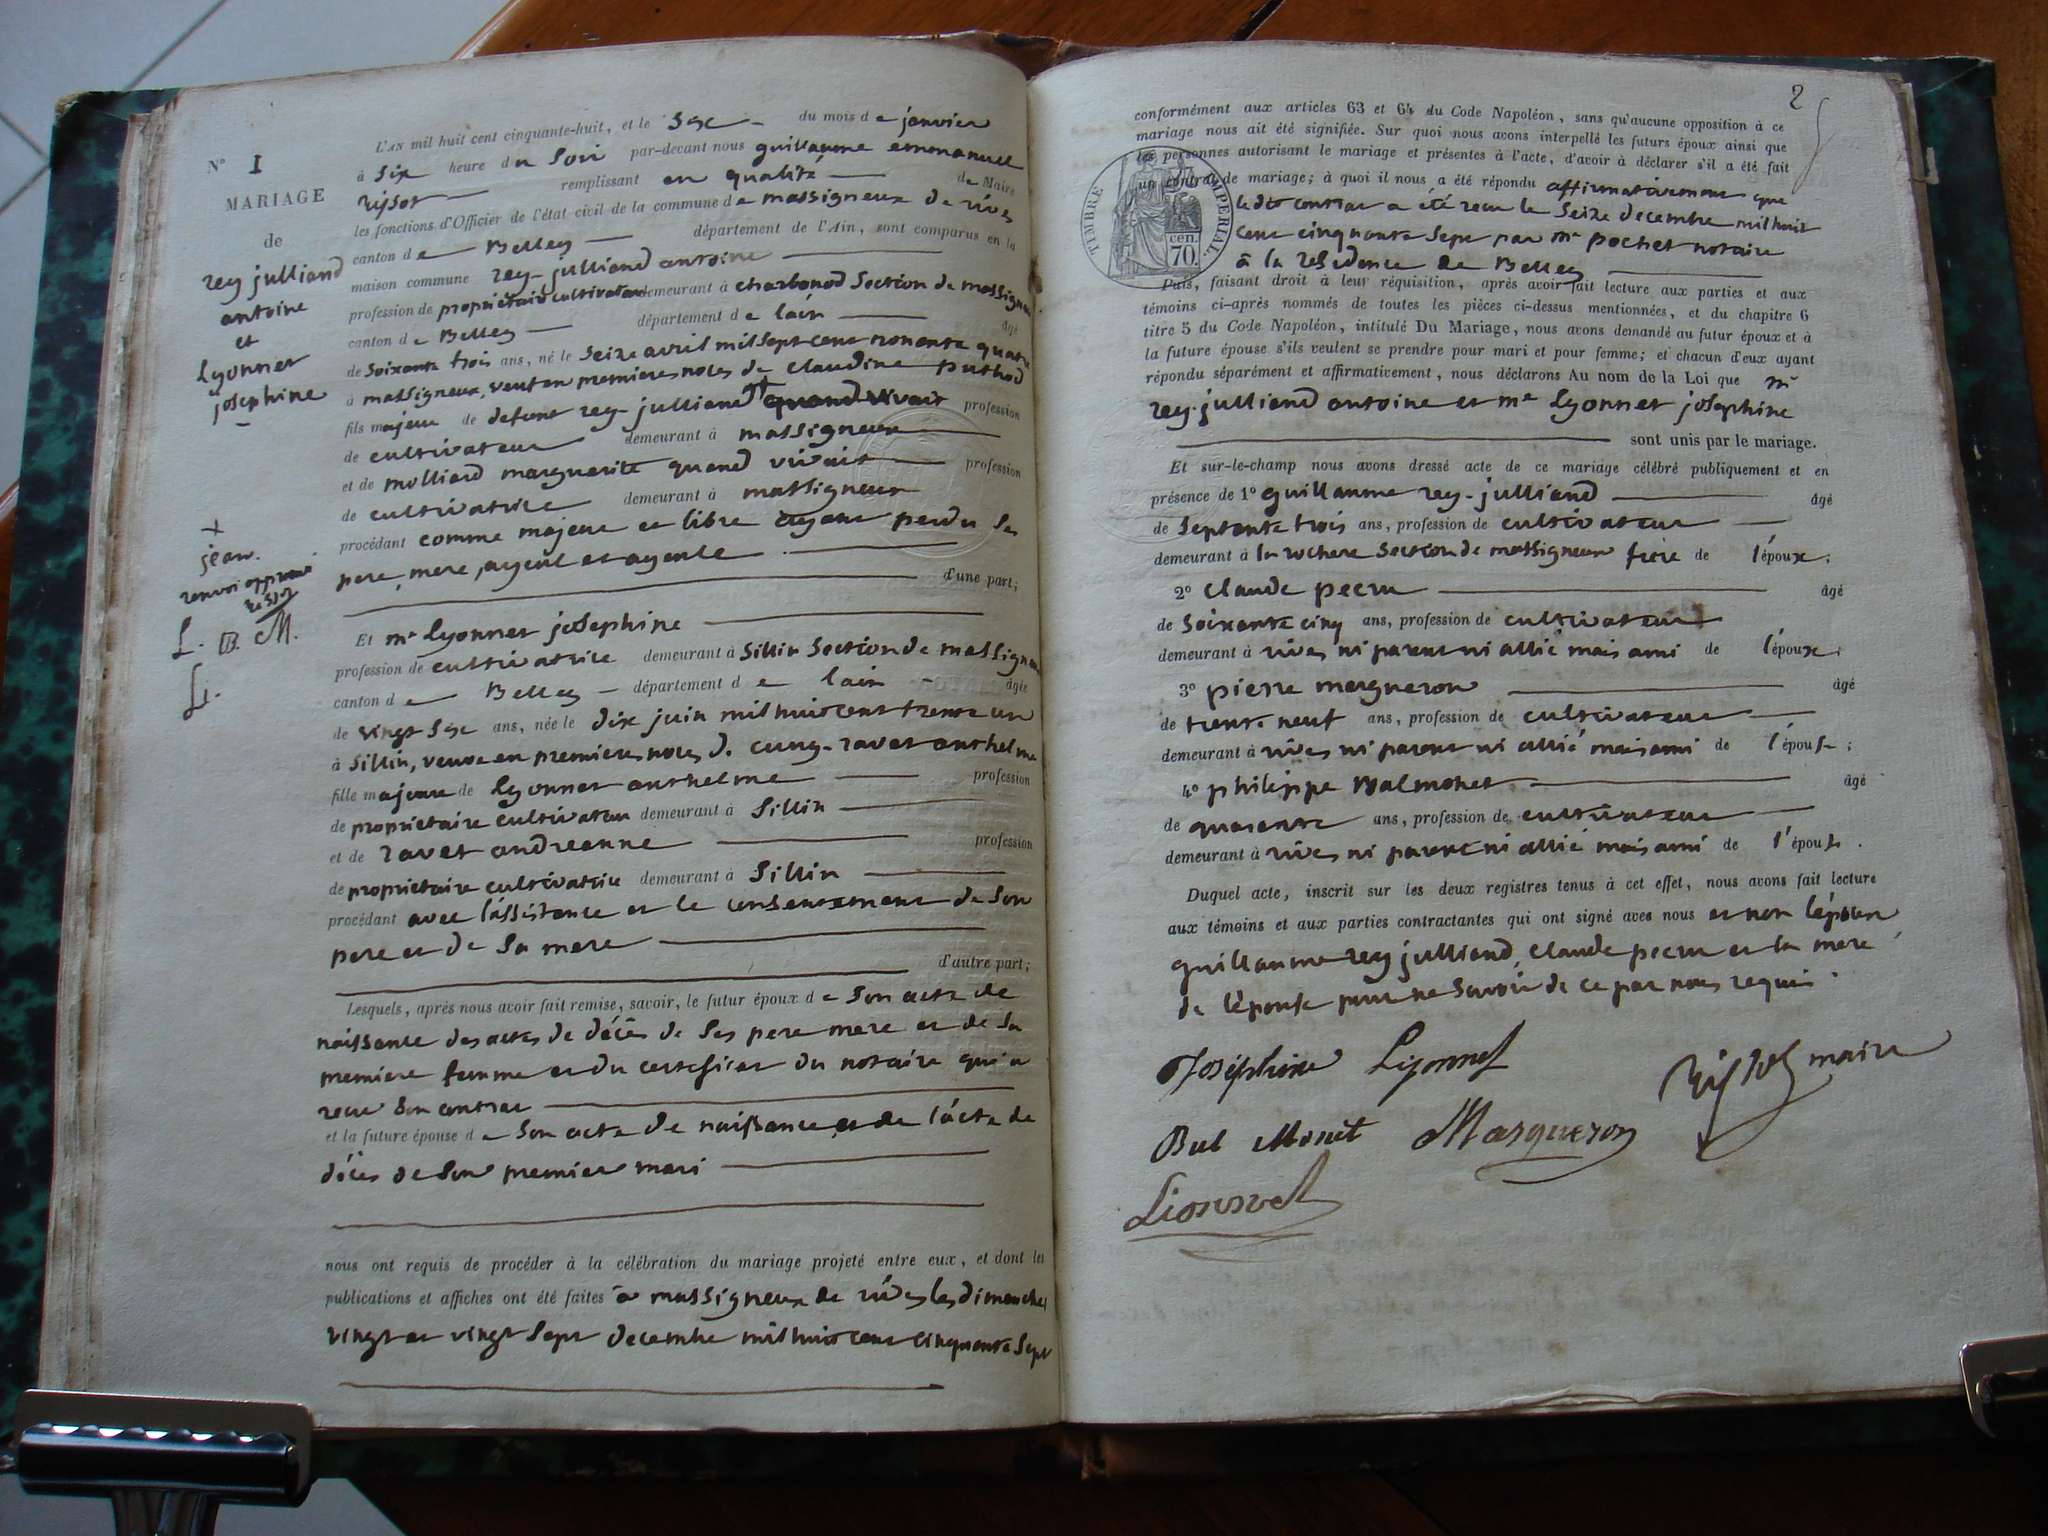 N° 1
MARIAGE
de
rey julliand
antoine
et
Lyonnet
josephine
+
jean.
renvoi approuvé
L. B. M.
L.
L'AN mil huit cent cinquante-huit, et le du mois de janvier
à six heure du soir par-devant nous guillaume emmanuel
rissot remplissant en qualité de Maire
les fonctions d'Officier de l'état civil de la commune de massigneux de rives
canton de Belley département de l'Ain, sont comparus en la
maison commune rey-julliand antoine
profession de propriétaire cultivateur demeurant à charbonod section de massigneu
canton de Belley département de lain âgé
de soixante trois ans, né le seize avril mil sept cent nonante quatre
à massigneux, veuf en premieres noces de claudine puthod
fils majeur de defunt rey-julliand + quand vivait profession
de cultivateur demeurant à massigneux
et de molliard marguerite quand vivait profession
de cultivatrice demeurant à massigneux
procédant comme majeur et libre ayant perdu ses
pere, mere, ayeul et ayeule
d'une part;
Et me Lyonnet josephine
profession de cultivatrice demeurant à sillin section de massigneu
canton de Belley département de lain âgée
de vingt six ans, née le dix juin mil huit cent trente un
à sillin, veuve en premieres noces de cuny-ravet anthelme
fille majeure de Lyonnet anthelme profession
de propriétaire cultivateur demeurant à sillin
et de ravet andreanne profession
de propriétaire cultivatrice demeurant à sillin
procédant avec l'assistance et le consentement de son
pere et de sa mere
d'autre part;
Lesquels, après nous avoir fait remise, savoir, le futur époux de son acte de
naissance des actes de décès de ses pere mere et de sa
premiere femme et du certificat du notaire qui a
recu son contrat
et la future épouse de son acte de naissance et de l'acte de
décès de son premier mari
nous ont requis de procéder à la célébration du mariage projeté entre eux, et dont les
publications et affiches ont été faites à massigneux de rives les dimanches
vingt et vingt sept decembre mil huit cent cinquante sept
2
conformément aux articles 63 et 64 du Code Napoléon, sans qu'aucune opposition à ce
mariage nous ait été signifiée. Sur quoi nous avons interpellé les futurs époux ainsi que
les personnes autorisant le mariage et présentes à l'acte, d'avoir à déclarer s'il a été fait
un contrat de mariage; à quoi il nous a été répondu affirmativement que
ledit contrat a été recu le seize decembre mil huit
cent cinquante sept par me pochet notaire
à la residence de Belley
TIMBRE IMPERIAL
70 cen.
Puis, faisant droit à leur réquisition, après avoir fait lecture aux parties et aux
témoins ci-après nommés de toutes les pièces ci-dessus mentionnées, et du chapitre 6
titre 5 du Code Napoléon, intitulé Du Mariage, nous avons demandé au futur époux et à
la future épouse s'ils veulent se prendre pour mari et pour femme; et chacun d'eux ayant
répondu séparément et affirmativement, nous déclarons Au nom de la Loi que mr
rey-julliand antoine et me Lyonnet josephine
sont unis par le mariage.
Et sur-le-champ nous avons dressé acte de ce mariage célébré publiquement et en
présence de 1° guillaume rey-julliand âgé
de septante trois ans, profession de cultivateur
demeurant à la rochere section de massigneux frere de l'époux;
2° claude pecru âgé
de soixante cinq ans, profession de cultivateur
demeurant à rives ni parent ni allié mais ami de l'époux;
3° pierre margueron âgé
de trente neuf ans, profession de cultivateur
demeurant à rives ni parent ni allié mais ami de l'épouse;
4° philippe Balmonet âgé
de quarante ans, profession de cultivateur
demeurant à rives ni parent ni allié mais ami de l'épouse.
Duquel acte, inscrit sur les deux registres tenus à cet effet, nous avons fait lecture
aux témoins et aux parties contractantes qui ont signé avec nous et non l'époux
guillaume rey julliand, claude pecru et la mere
de l'épouse pour ne savoir de ce par nous requis
Joséphine Lyonnet
maire
Bal Monet Margueron
Lionnet